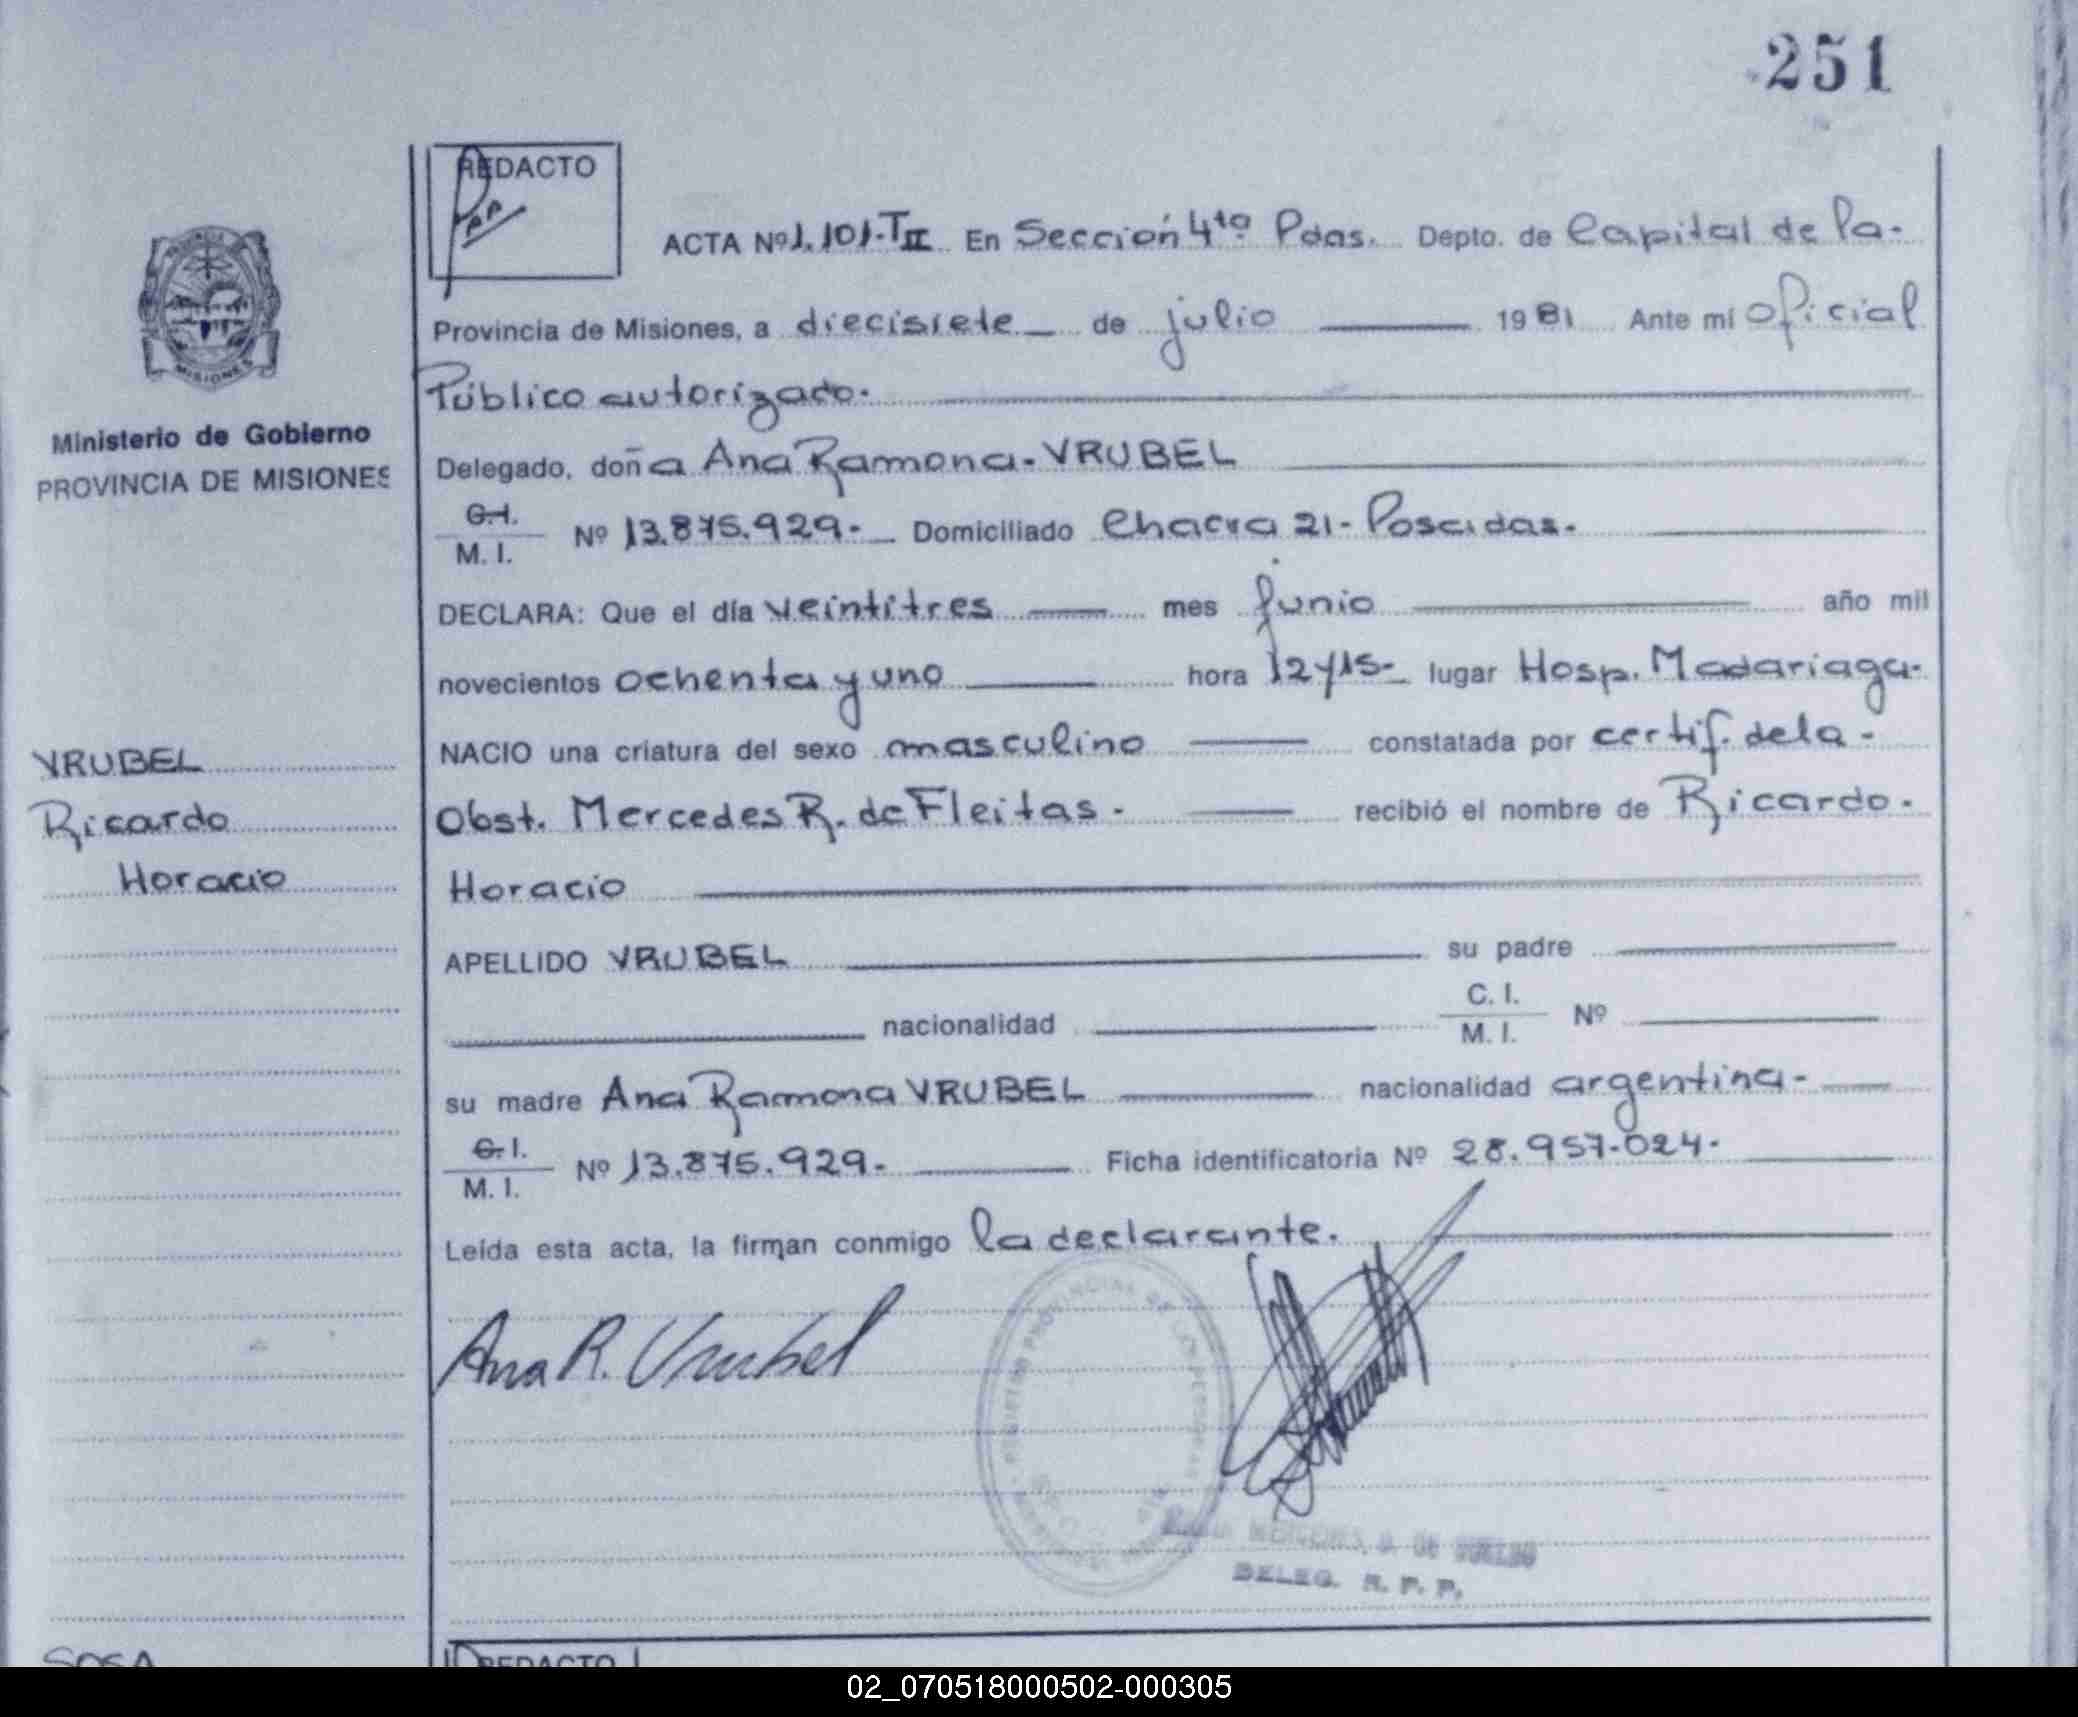 251
REDACTO
ACTA Nº 1.101-TII En Sección 4ta Pdas. Depto. de Capital de la-
Provincia de Misiones, a diecisiete de julio 1981 Ante mi oficial
Público autorizado.
Ministerio de Gobierno
PROVINCIA DE MISIONES
MISIONES
Delegado, doña Ana Ramona-VRUBEL
C.I.
M. I. Nº 13.875.929.- Domiciliado Chacra 21- Posadas.
DECLARA: Que el día veintitres mes Junio año mil
novecientos ochenta y uno hora 12y15- lugar Hosp. Madariaga-
NACIO una criatura del sexo masculino constatada por certif. de la-
VRUBEL
Obst. Mercedes R. de Fleitas- recibió el nombre de Ricardo-
Ricardo
Horacio
Horacio
APELLIDO VRUBEL su padre
nacionalidad C. I.
M. I. Nº
su madre Ana Ramona VRUBEL nacionalidad argentina-
C.I.
M. I. Nº 13.875.929- Ficha identificatoria Nº 28.957.024-
Leída esta acta, la firman conmigo la declarante.
Ana R. Vrubel
DELEG. R. P. P.
SOSA
REDACTO
02_070518000502-000305